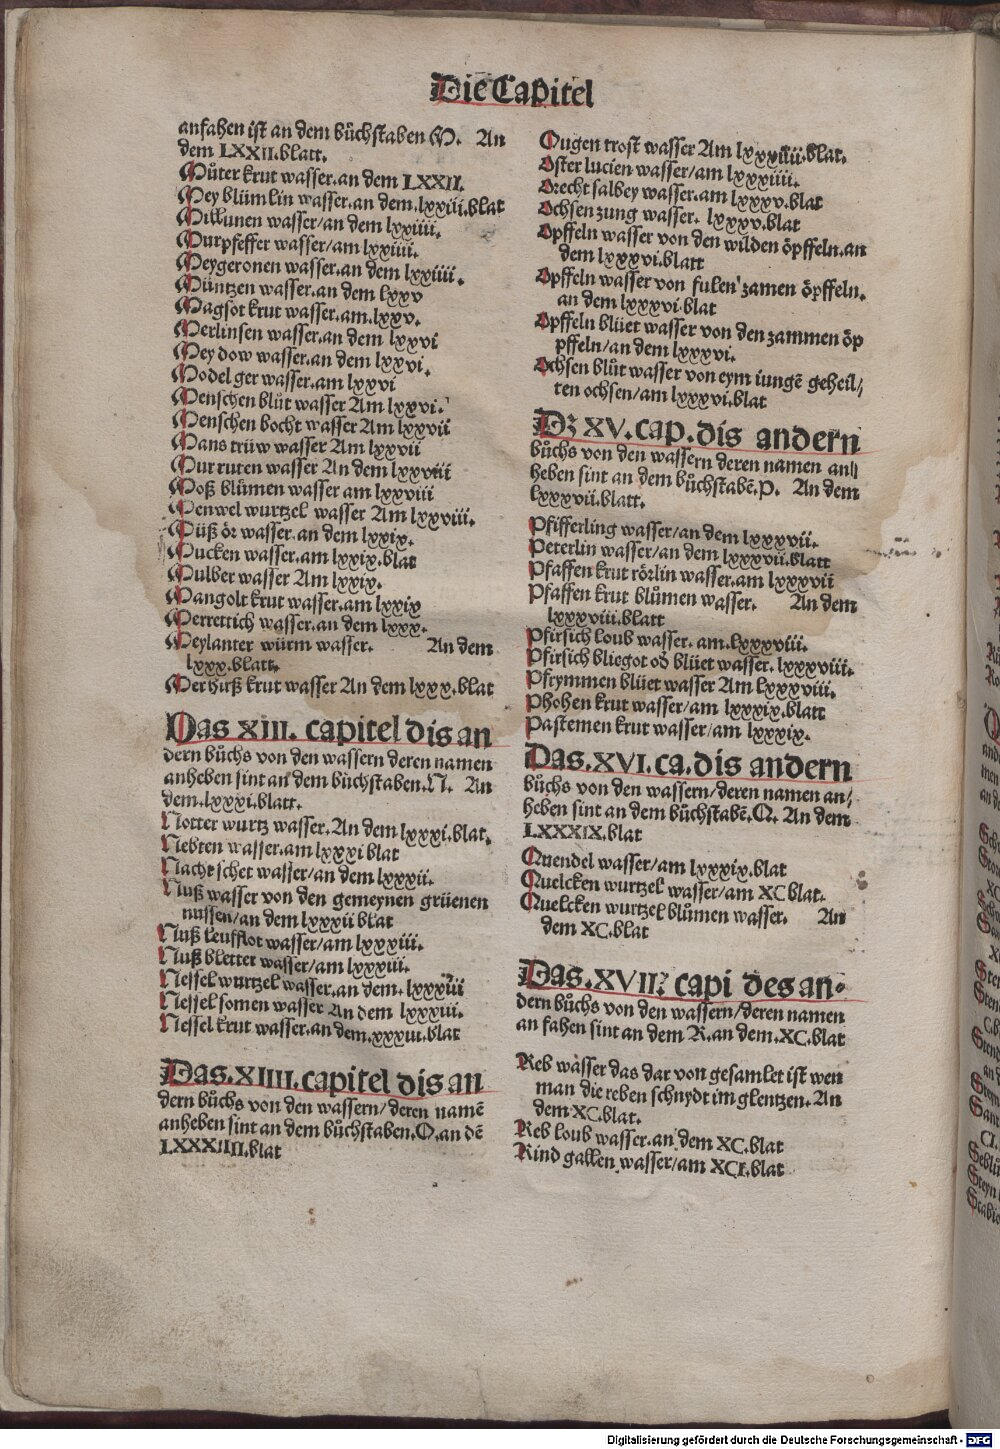 Die Capitel
anfahen ist an dem bůchstaben M. An
dem LXXII.blatt.
Můter krut wasser.an dem LXXII.
Mey blümlin wasser.an dem.lxxiii.blat
Millunen wasser/an dem lxxiiii.
Murpfeffer wasser/am lxxiiii.
Meygeronen wasser.an dem lxxiiii.
Müntzen wasser.an dem lxxv
Magsot krut wasser.am.lxxv.
Merlinsen wasser.an dem lxxvi
Mey dow wasser.an dem lxxvi.
Model ger wasser.am lxxvi
Menschen blüt wasser Am lxxvi.
Menschen bocht wasser Am lxxvii
Mans trüw wasser Am lxxvii
Mur ruten wasser An dem lxxviii
Moß blůmen wasser am lxxviii
Menwel wurtzel wasser Am lxxviii.
Müß ör wasser.an dem lxxix.
Mucken wasser.am lxxix.blat
Mulber wasser Am lxxix.
Mangolt krut wasser.am lxxix
Merrettich wasser.an dem lxxx.
Meylanter würm wasser. An dem
lxxx.blatt.
Merhirß krut wasser An dem lxxx.blat
Das XIII. capitel dis an
dern bůchs von den wassern deren namen
anheben sint an dem bůchstaben.N. An
dem.lxxxi.blatt.
Notter wurtz wasser.An dem lxxxi.blat.
Nebten wasser.am lxxxi blat
Nacht schet wasser/an dem lxxxii.
Nuß wasser von den gemeynen grüenen
nussen/an dem lxxxii blat
Nuß leufflot wasser/am lxxxiii.
Nuß bletter wasser/am lxxxiii.
Nessel wurtzel wasser.an dem. lxxxiii
Nessel somen wasser An dem lxxxiii.
Nessel krut wasser.an dem.xxxiii.blat
Das.XIIII.capitel dis an
dern bůchs von den wassern/deren namē
anheben sint an dem bůchstaben.O.an dē
LXXXIIII.blat
Ougen trost wasser Am lxxxiiii.blat.
Oster lucien wasser/am lxxxiiii.
Orecht salbey wasser.am lxxxv.blat
Ochsen zung wasser. lxxxv.blat
Opffeln wasser von den wilden öpffeln.an
dem lxxxvi.blatt
Opffeln wasser von fulen zamen öpffeln.
an dem lxxxvi.blat
Opffeln blüet wasser von den zammen öp
pffeln/an dem lxxxvi.
Ochsen blůt wasser von eym iungē geheil/
ten ochsen/am lxxxvi.blat
Dz XV.cap.dis andern
bůchs von den wassern deren namen an
heben sint an dem bůchstabē.P. An dem
lxxxvii.blatt.
Pfifferling wasser/an dem lxxxvii.
Peterlin wasser/an dem lxxxvii.blatt
Pfaffen krut rörlin wasser.am lxxxvii
Pfaffen krut blůmen wasser. An dem
lxxxviii.blatt
Pfirsich loub wasser. am.lxxxviii.
Pfirsich bliegot od blüet wasser. lxxxviii.
Pfrymmen blüet wasser Am lxxxviii.
Phohen krut wasser/am lxxxix.blatt
Pastemen krut wasser/am lxxxix.
Das.XVI.ca.dis andern
bůchs von den wassern/deren namen an/
heben sint an dem bůchstabē.Q. An dem
LXXXIX.blat
Quendel wasser/am lxxxix.blat
Quelcken wurtzel wasser/am XC blat.
Quelcken wurtzel blůmen wasser. An
dem XC.blat
Das.XVII. capi des an-
dern bůchs von den wassern/deren namen
an fahen sint an dem R.an dem.XC.blat
Reb wasser das dar von gesamlet ist wen
man die reben schnydt im glentzen. An
dem XC.blat.
Reb loub wasser.an dem XC.blat
Rind gallen wasser/am XCI.blat
Digitalisierung gefördert durch die Deutsche Forschungsgemeinschaft - DFG